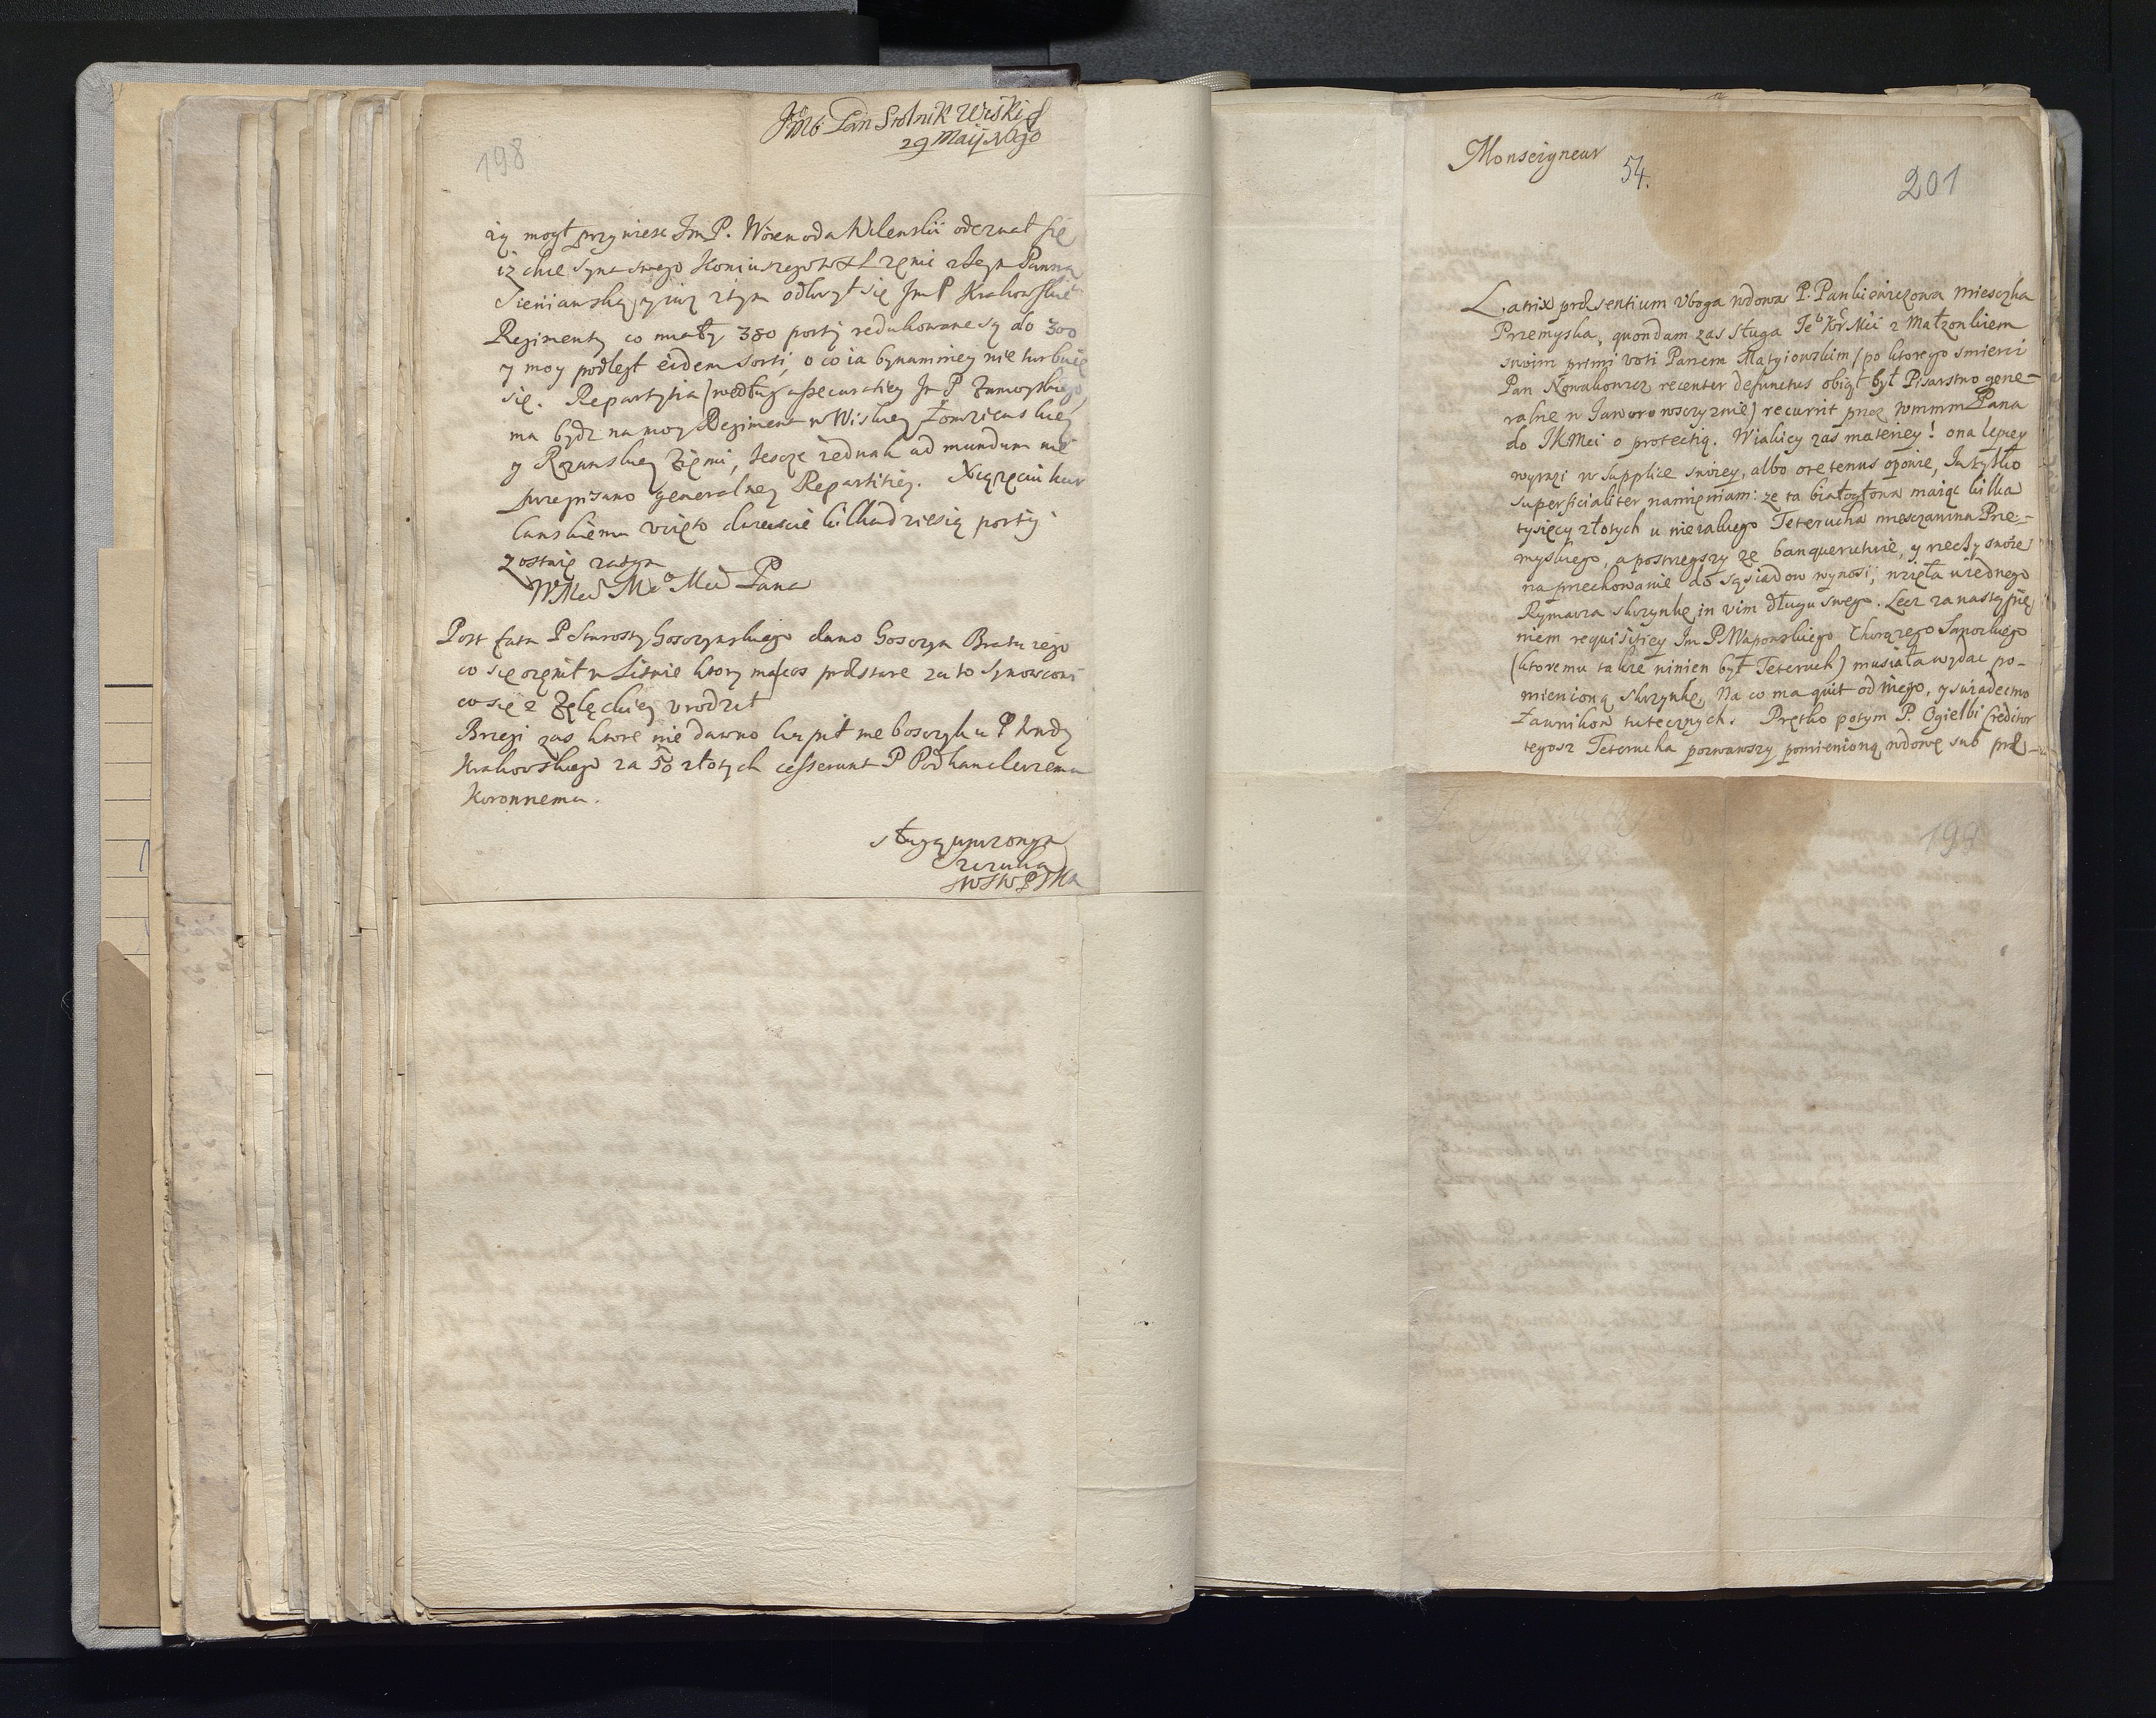 Jmć Pan Stolnik Wiski
29 Maij 1690
198
ży mogł przyniesc Jm P. Woiewoda Wilenski odezwał się
iż chce syna swego Koniuszego WXL żęnic z Jeym Panną
Sieniawską, y iuz z tym odkrył się Jm P Krakowskie
Regimenty co miały 380 portij redukowane są do 300
y moy podległ eidem sorti, o co ia bynamniey nie turbuię
się. Repartytia według assecuratiey Jm P Zamoyskiego
ma bydz na moy Regiment w Wiskiey Łomżienskiey
y Rożanskiey Ziemi, Jescze iednak ad mundum nie
przepisano generalney Repartitiey. Xiążęciu kur
lanskiemu vcięto dwiescie kilkadziesią portij
zostaię zatym
WMci Me° Mci Pana
Post fata P Starosty Gosczynskiego dano Gosczyn Bratu iego
co się ożęnił w Litwie ktory ma
co się z Zęlęckiey vrodził
Brzegi zas ktore nie dawno kupił nieboszyk u P Wdy
Krakowskiego za 50 złotych cesserunt P Podkanclerzemu
Koronnemu.
sługą uniżonym
Szczuka
Monseigneur
54.
201
Latrix præsentium vboga wdowa P. Pankiewiczowa miesczka
Przemyska, quondam zas sługa Je° Kr Mći z Małzonkiem
swoim primi voti Panem Matyiowskim (po ktorego smierci
Pan Nowakowicz recenter defunctus obiął był Pisarstwo gene-
ralne w Jaworowsczyznie) recurrit przez WMMMPana
do JKMci o protectią. W iakiey zas materiey! ona lepiey
wyrazi w supplice swoiey, albo ore tenus opowie, Ja tylko
superficialiter namięniam: ze ta białogłowa maiąc kilka
tysięcy złotych u nieiakiego Teterucha miesczanina Prze-
myskiego, a postrzegszy ze banquerutuie, y rzeczy swoie
na przechowanie do sąsiadow wynosi, wzięła u iednego
Rymarza skrzynkę in vim długu swego. Lecz za nastąpie
niem requisitiey Jm P. Waposkiego Chorążego Sanockiego
(ktoremu takze winien był Teteruch) musiała wydac po-
mienioną skrzynkę, Na co ma quit od niego, y swiadectwo
Ławnikow tutecznych. Prętko potym P. Ogielbi Creditor
tegosz Teterucha pozwawszy pomienioną wdowę sub præ-
199